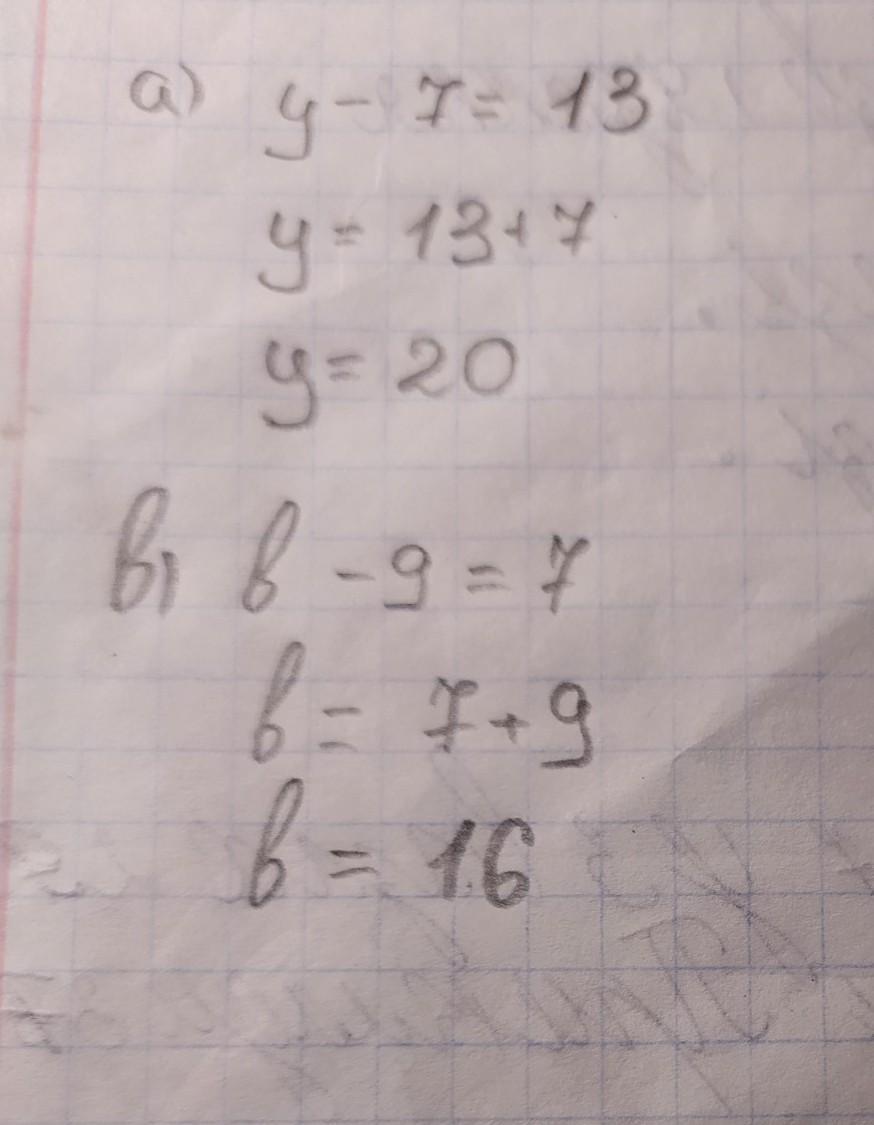 а) у - 7 = 13
у = 13 + 7
у = 20
в) в - 9 = 7
в = 7 + 9
в = 16